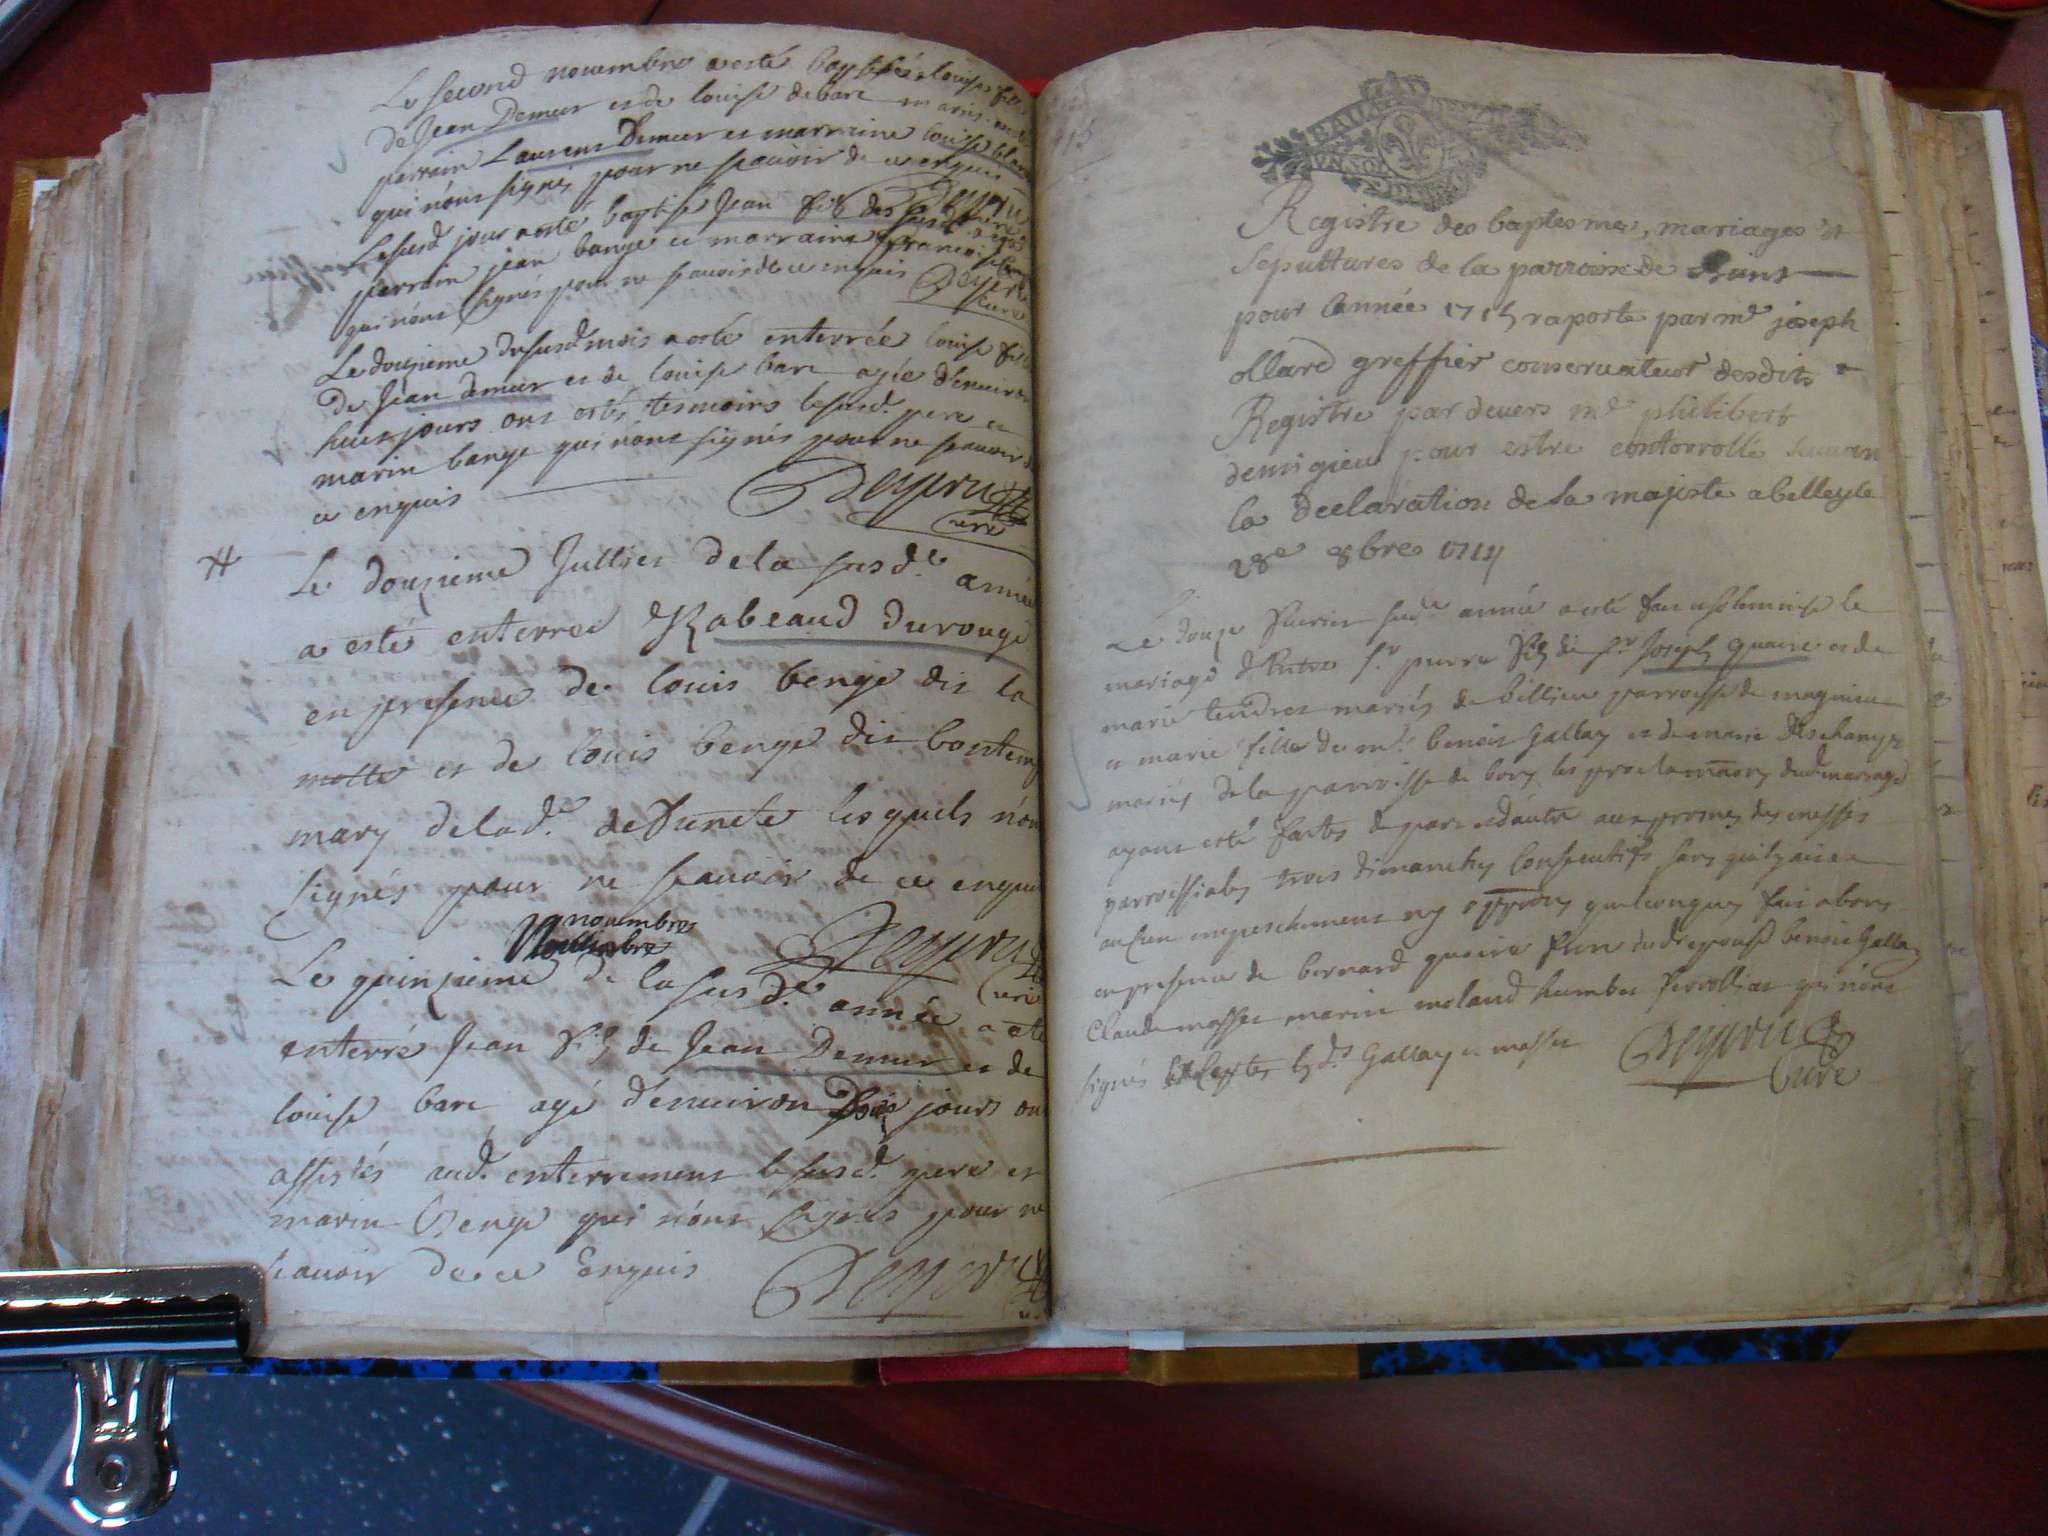 Le second nouembre a esté baptisée louise
de Jean Demeur et de louise bare mariés
parrain Laurens Demeur et marraine louise
qui nont signés pour ne scauoir de ce enquis
Deyeru
Le susd. jour a esté baptisé Jean fils des susd.
parrain jean bange et marraine francoise
qui nont signés pour ne scauoir de ce enquis Deyeru
Curé
Le douzieme du susd. mois a esté enterrée louise fille
De Jean demeur et de louise bare agée d'enuiron
huit jours ont estés tesmoins le susd. pere et
marin bange qui nont signés pour ne scauoir
ce enquis
Deyeru
Curé
Le douzieme Juillet de la susd.e année
a esté enterree Rabeaud durouge
en presence de louis benge dit la
motte et de louis benge dit bontemp
mary de la d.e defuncte lesquels n'ont
signés pour ne scauoir de ce enquis
Deyeru
Curé
nouembre
nouembre
Le quinzieme de la susd.e année a esté
enterré Jean fils de Jean Demeur et de
louise bare agé d'enuiron jours ont
assistés aud. enterrement le susd. pere et
marin Benge qui n'ont signés pour ne
scauoir de ce Enquis
Deyeru
15
Registre des baptesmes, mariages et
sepultures de la parroisse de
pour lannée 1715 raporte par m.e joseph
ollard greffier conseruateur desdits
Registre par deuers m.e philibert
demigieu pour estre contorrollé suiuan
la declaration de sa majeste a belley le
28e 8bre 1714
Le douze feurier susd.e année a esté fait et solemnisé le
mariage d'Entre s.r pierre fils de s.r Joseph quaire et de
marie tendret mariés de billieu parroisse de magnieu
et marie fille de m.e benoit Gallay et de marie
mariés de la parroisse de bons les proclamations dud. mariage
ayant esté faites de part et d'autre aux prones des messes
parroissiales trois dimanches consecutifs sans quil y ait eu
aucun empeschement ny oppositions quelconques fait alors
en presence de bernard quaire frere dud. epouse benoit Gallay
Claude masset marin moland humbert qui n'ont
signés les d.s Gallay et masset
Deyeru
Curé